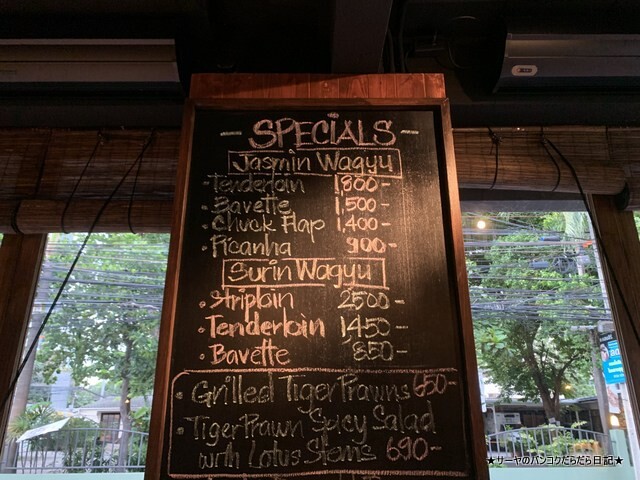 - SPECIALS -
Jasmin Wagyu
·Tenderloin 1,800-
·Bavette 1,500-
·Chuck Flap 1,400-
·Picanha 900-
Surin Wagyu
·Striplain 2500-
·Tenderloin 1,450-
·Bavette 850-
·Grilled Tiger Prawns 650-
·Tiger Prawn Spicy Salad
with Lotus Stems 690-
★サーヤのバンコクだらだら日記★